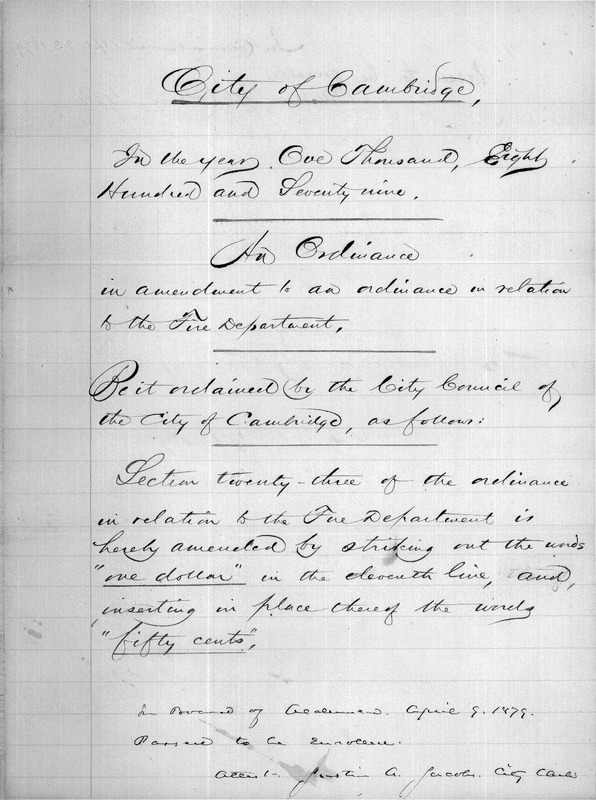 City of Cambridge,
In the year One Thousand, Eight
Hundred and Seventy nine.
An Ordinance
in amendment to an ordinance in relation
to the Fire Department.
Be it ordained by the City Council of
the City of Cambridge, as follows:
Section twenty-three of the ordinance
in relation to the Fire Department is
hereby amended by striking out the words
"one dollar" in the eleventh line, and,
inserting in place thereof the words
"fifty cents",
In Board of Aldermen. April 9. 1879.
Passed to be Enrolled.
Attest. Justin A. Jacobs. City Clerk